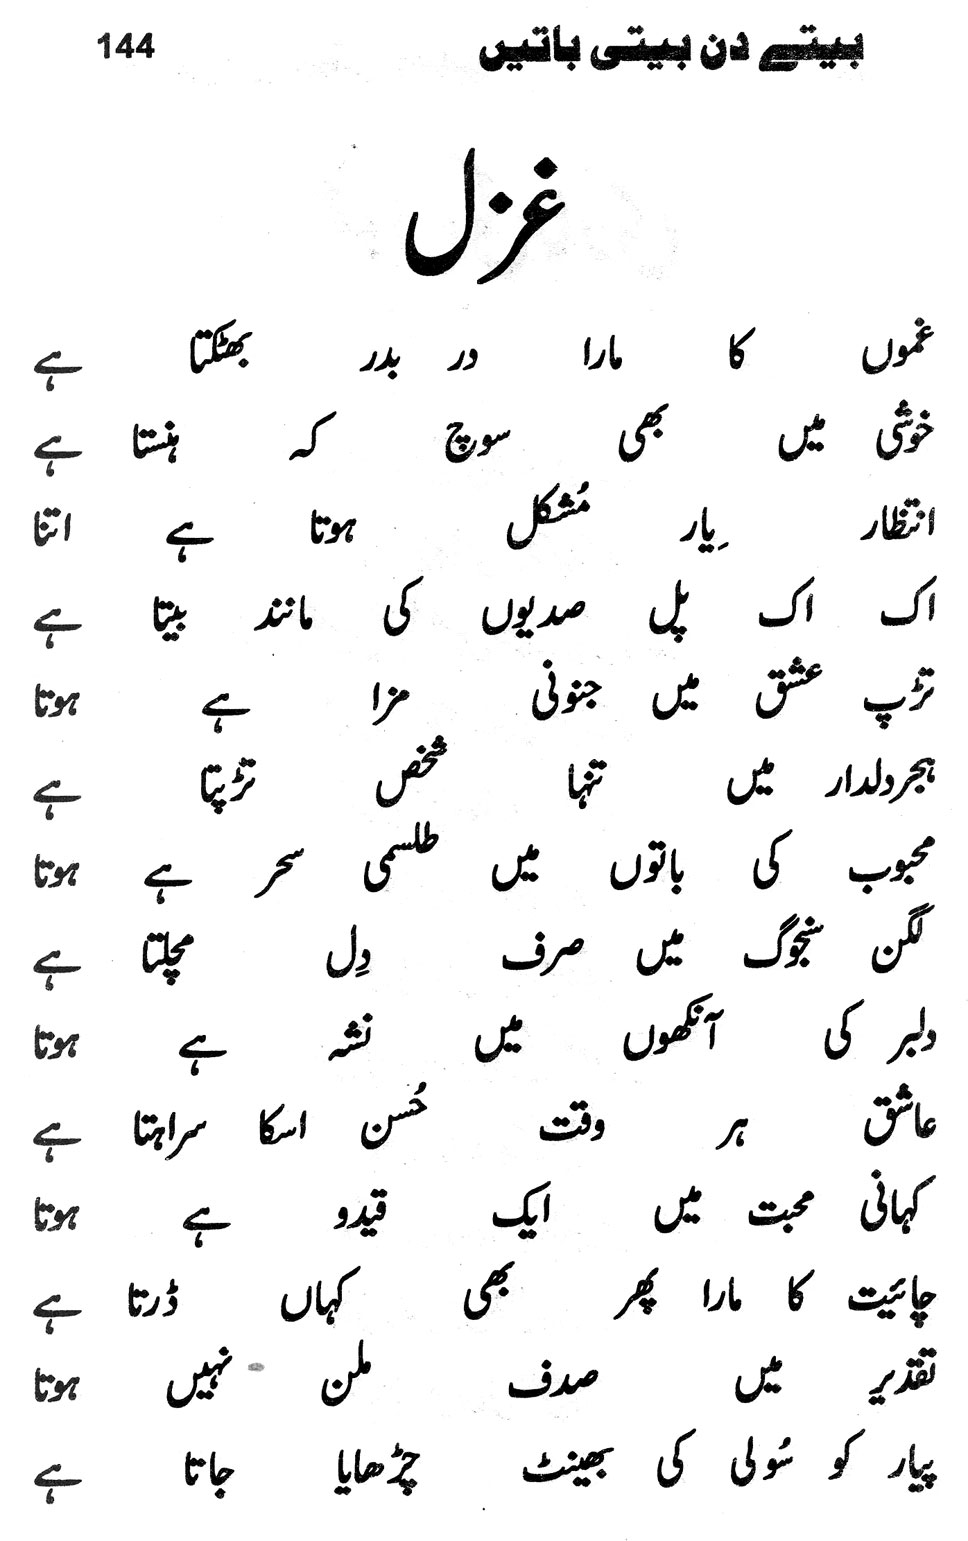 بیتے دن بیتی باتیں 144
غزل
غموں کا مارا در بدر بھٹکتا ہے
خوشی میں بھی سوچ کہ ہنستا ہے
انتظار ِیار مُشکل ہوتا ہے اتنا
اک اک پل صدیوں کی مانند بیتا ہے
تڑپ عشق میں جنونی مزا ہے ہوتا
ہجردلدار میں تنہا شخص تڑپتا ہے
محبوب کی باتوں میں طلسمی سحر ہے ہوتا
لگن سنجوگ میں صرف دِل مچلتا ہے
دلبر کی آنکھوں میں نشہ ہے ہوتا
عاشق ہر وقت حُسن اسکا سراہتا ہے
کہانی محبت میں ایک قیدو ہے ہوتا
چائیت کا مارا پھر بھی کہاں ڈرتا ہے
تقدیر میں صدف ملن نہیں ہوتا
پیار کو سُولی کی بھینٹ چڑھایا جاتا ہے